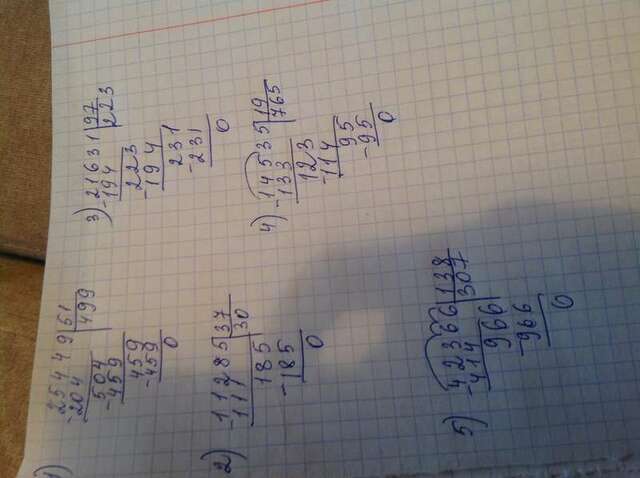 1) 25449 | 51
- 204 | 499
504
- 459
459
- 459
0
2) - 11285 | 37
111 | 30
185
- 185
0
3) - 21631 | 97
194 | 223
223
- 194
231
- 231
0
4) - 14535 | 19
133 | 765
123
- 114
95
- 95
0
5) - 42366 | 138
414 | 307
966
- 966
0